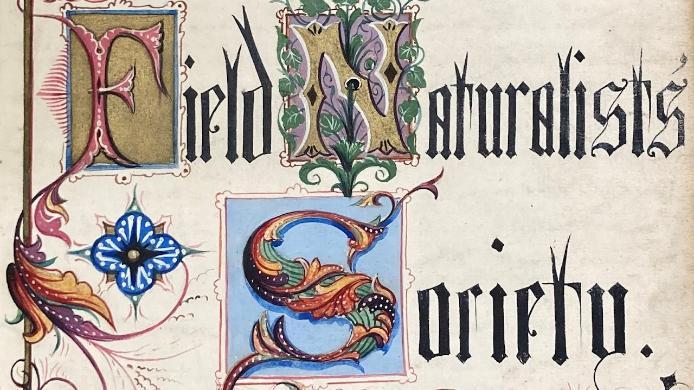 Field Naturalists'
Society.